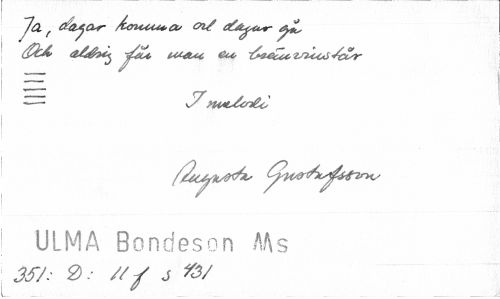 Ja, dagar komma och dagar gå
Och aldrig får man en brännvinstår
I melodi
Augusta Gustafsson
ULMA Bondeson Ms
351: D: 11 f s 431